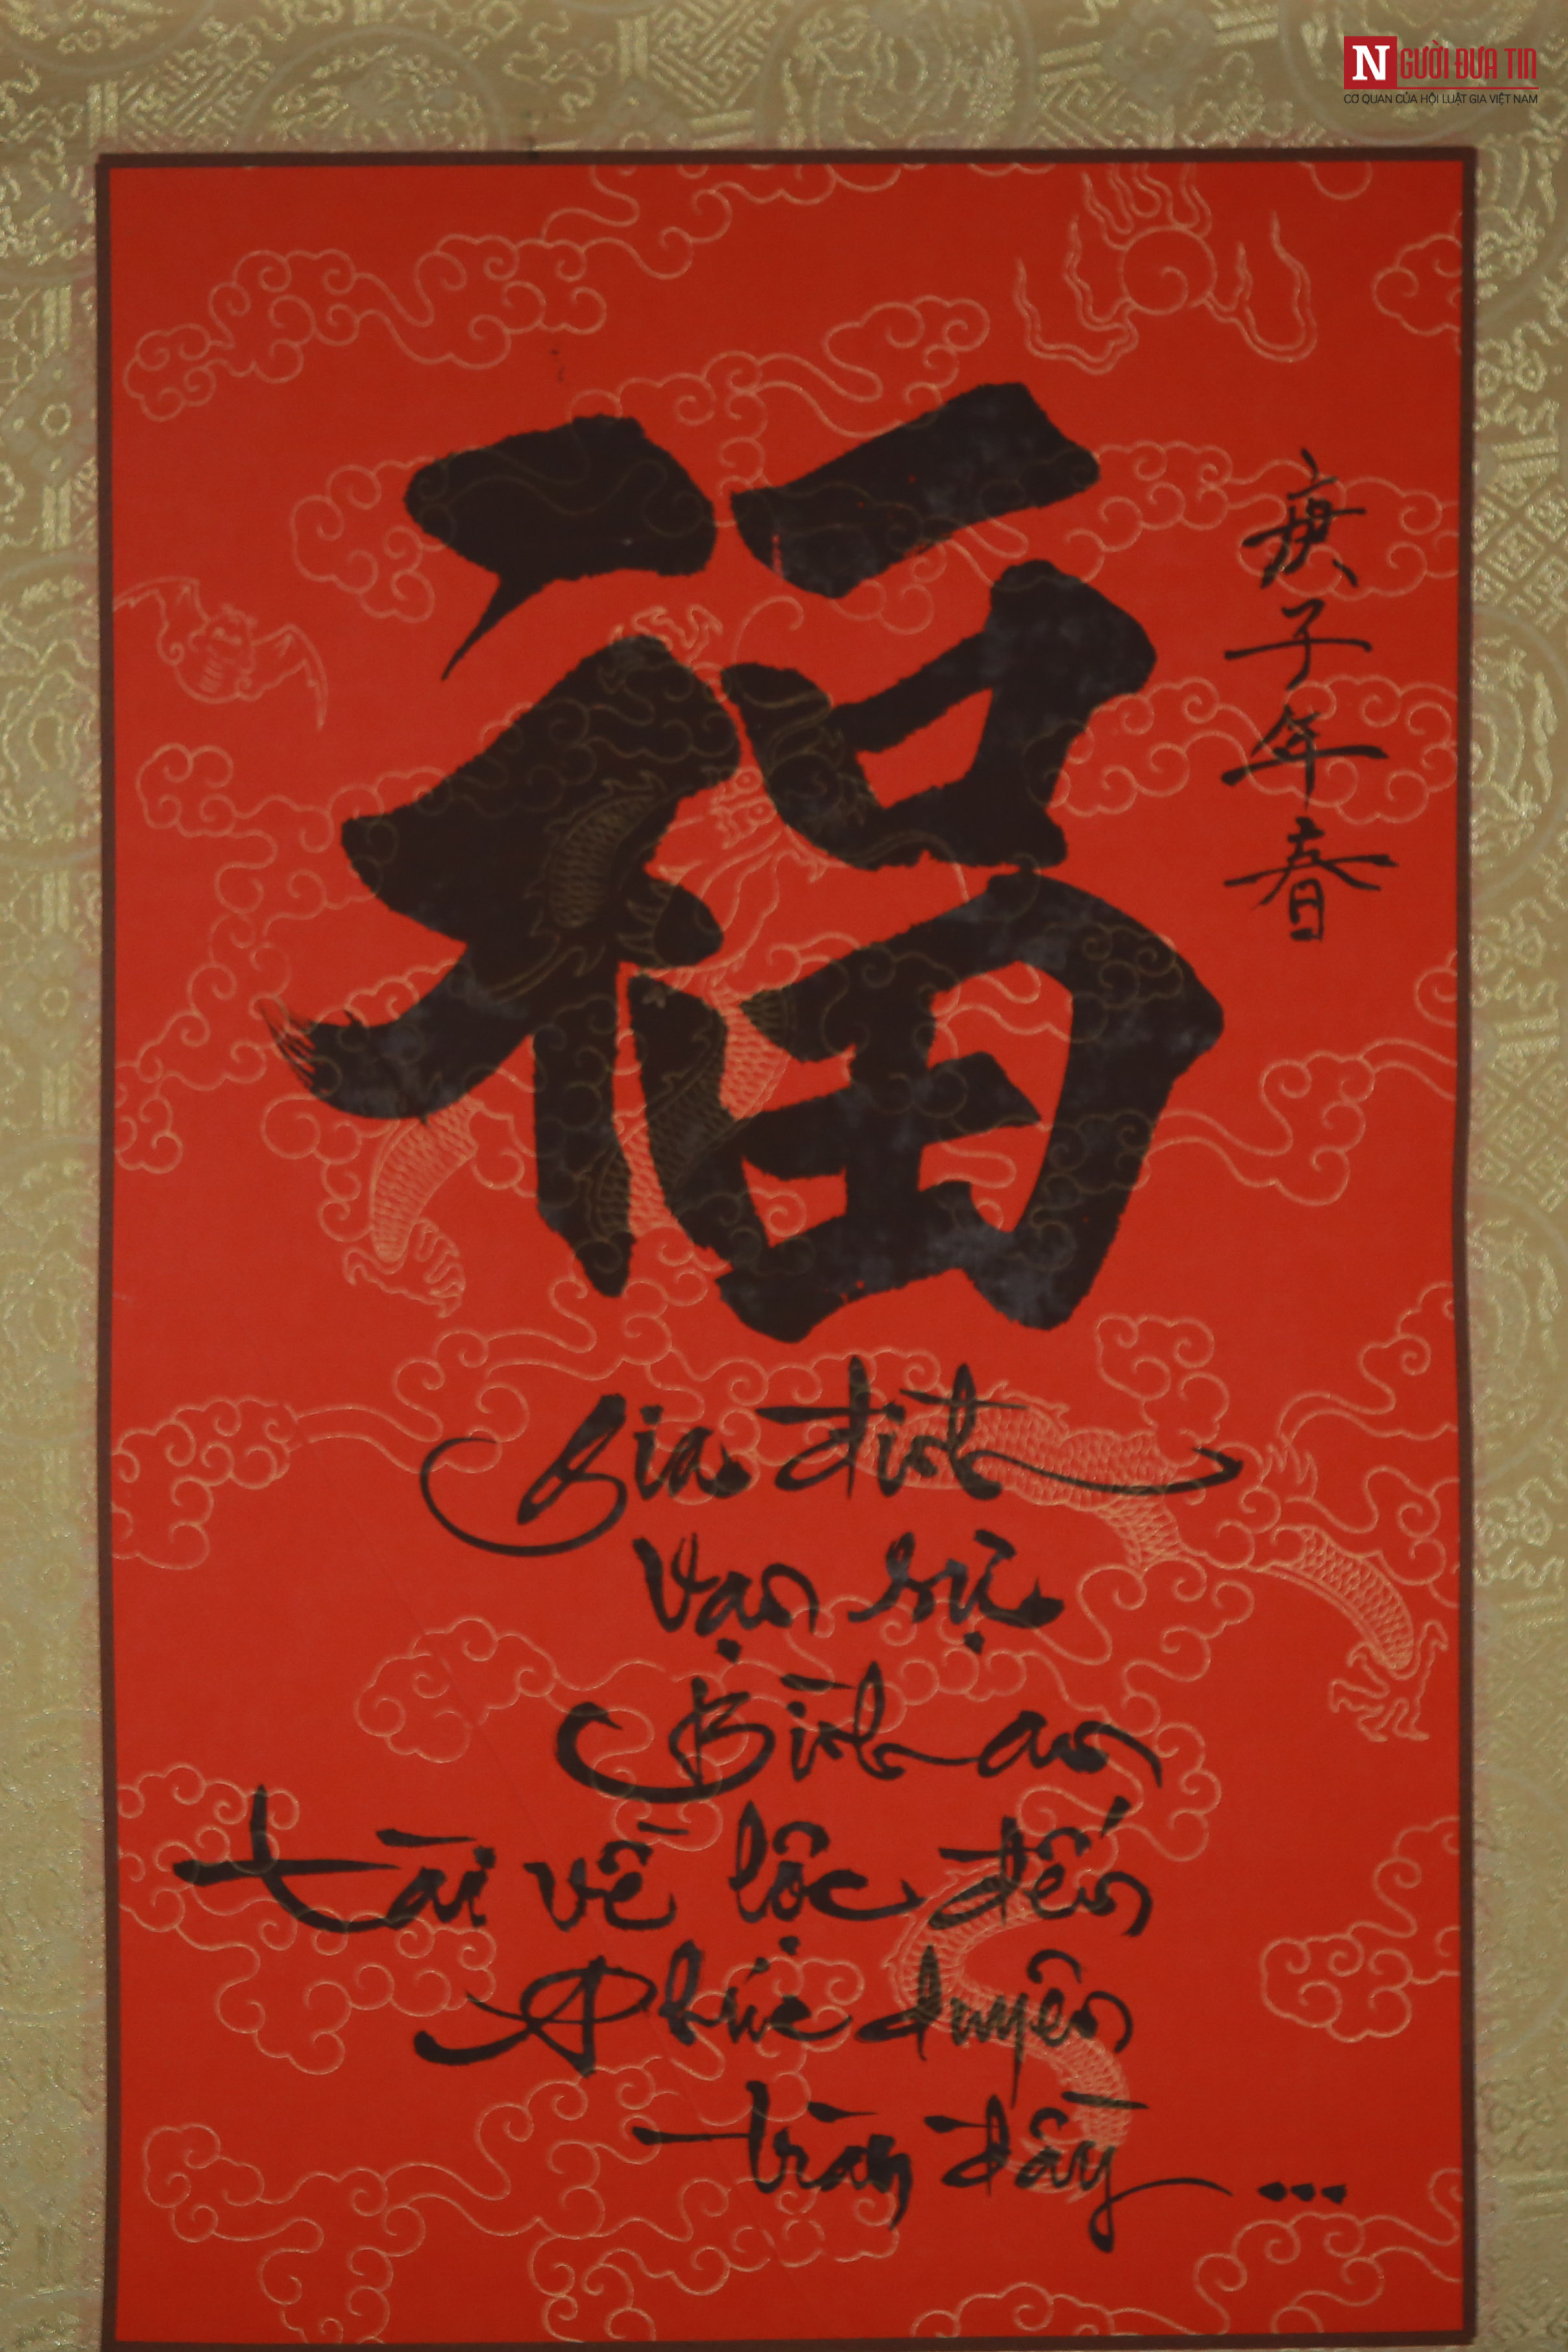 NGƯỜI ĐƯA TIN
CƠ QUAN CỦA HỘI LUẬT GIA VIỆT NAM
福
庚子年春
Gia đình
vạn sự
Bình an
tài về lộc đến
Phúc duyên
tràn đầy...